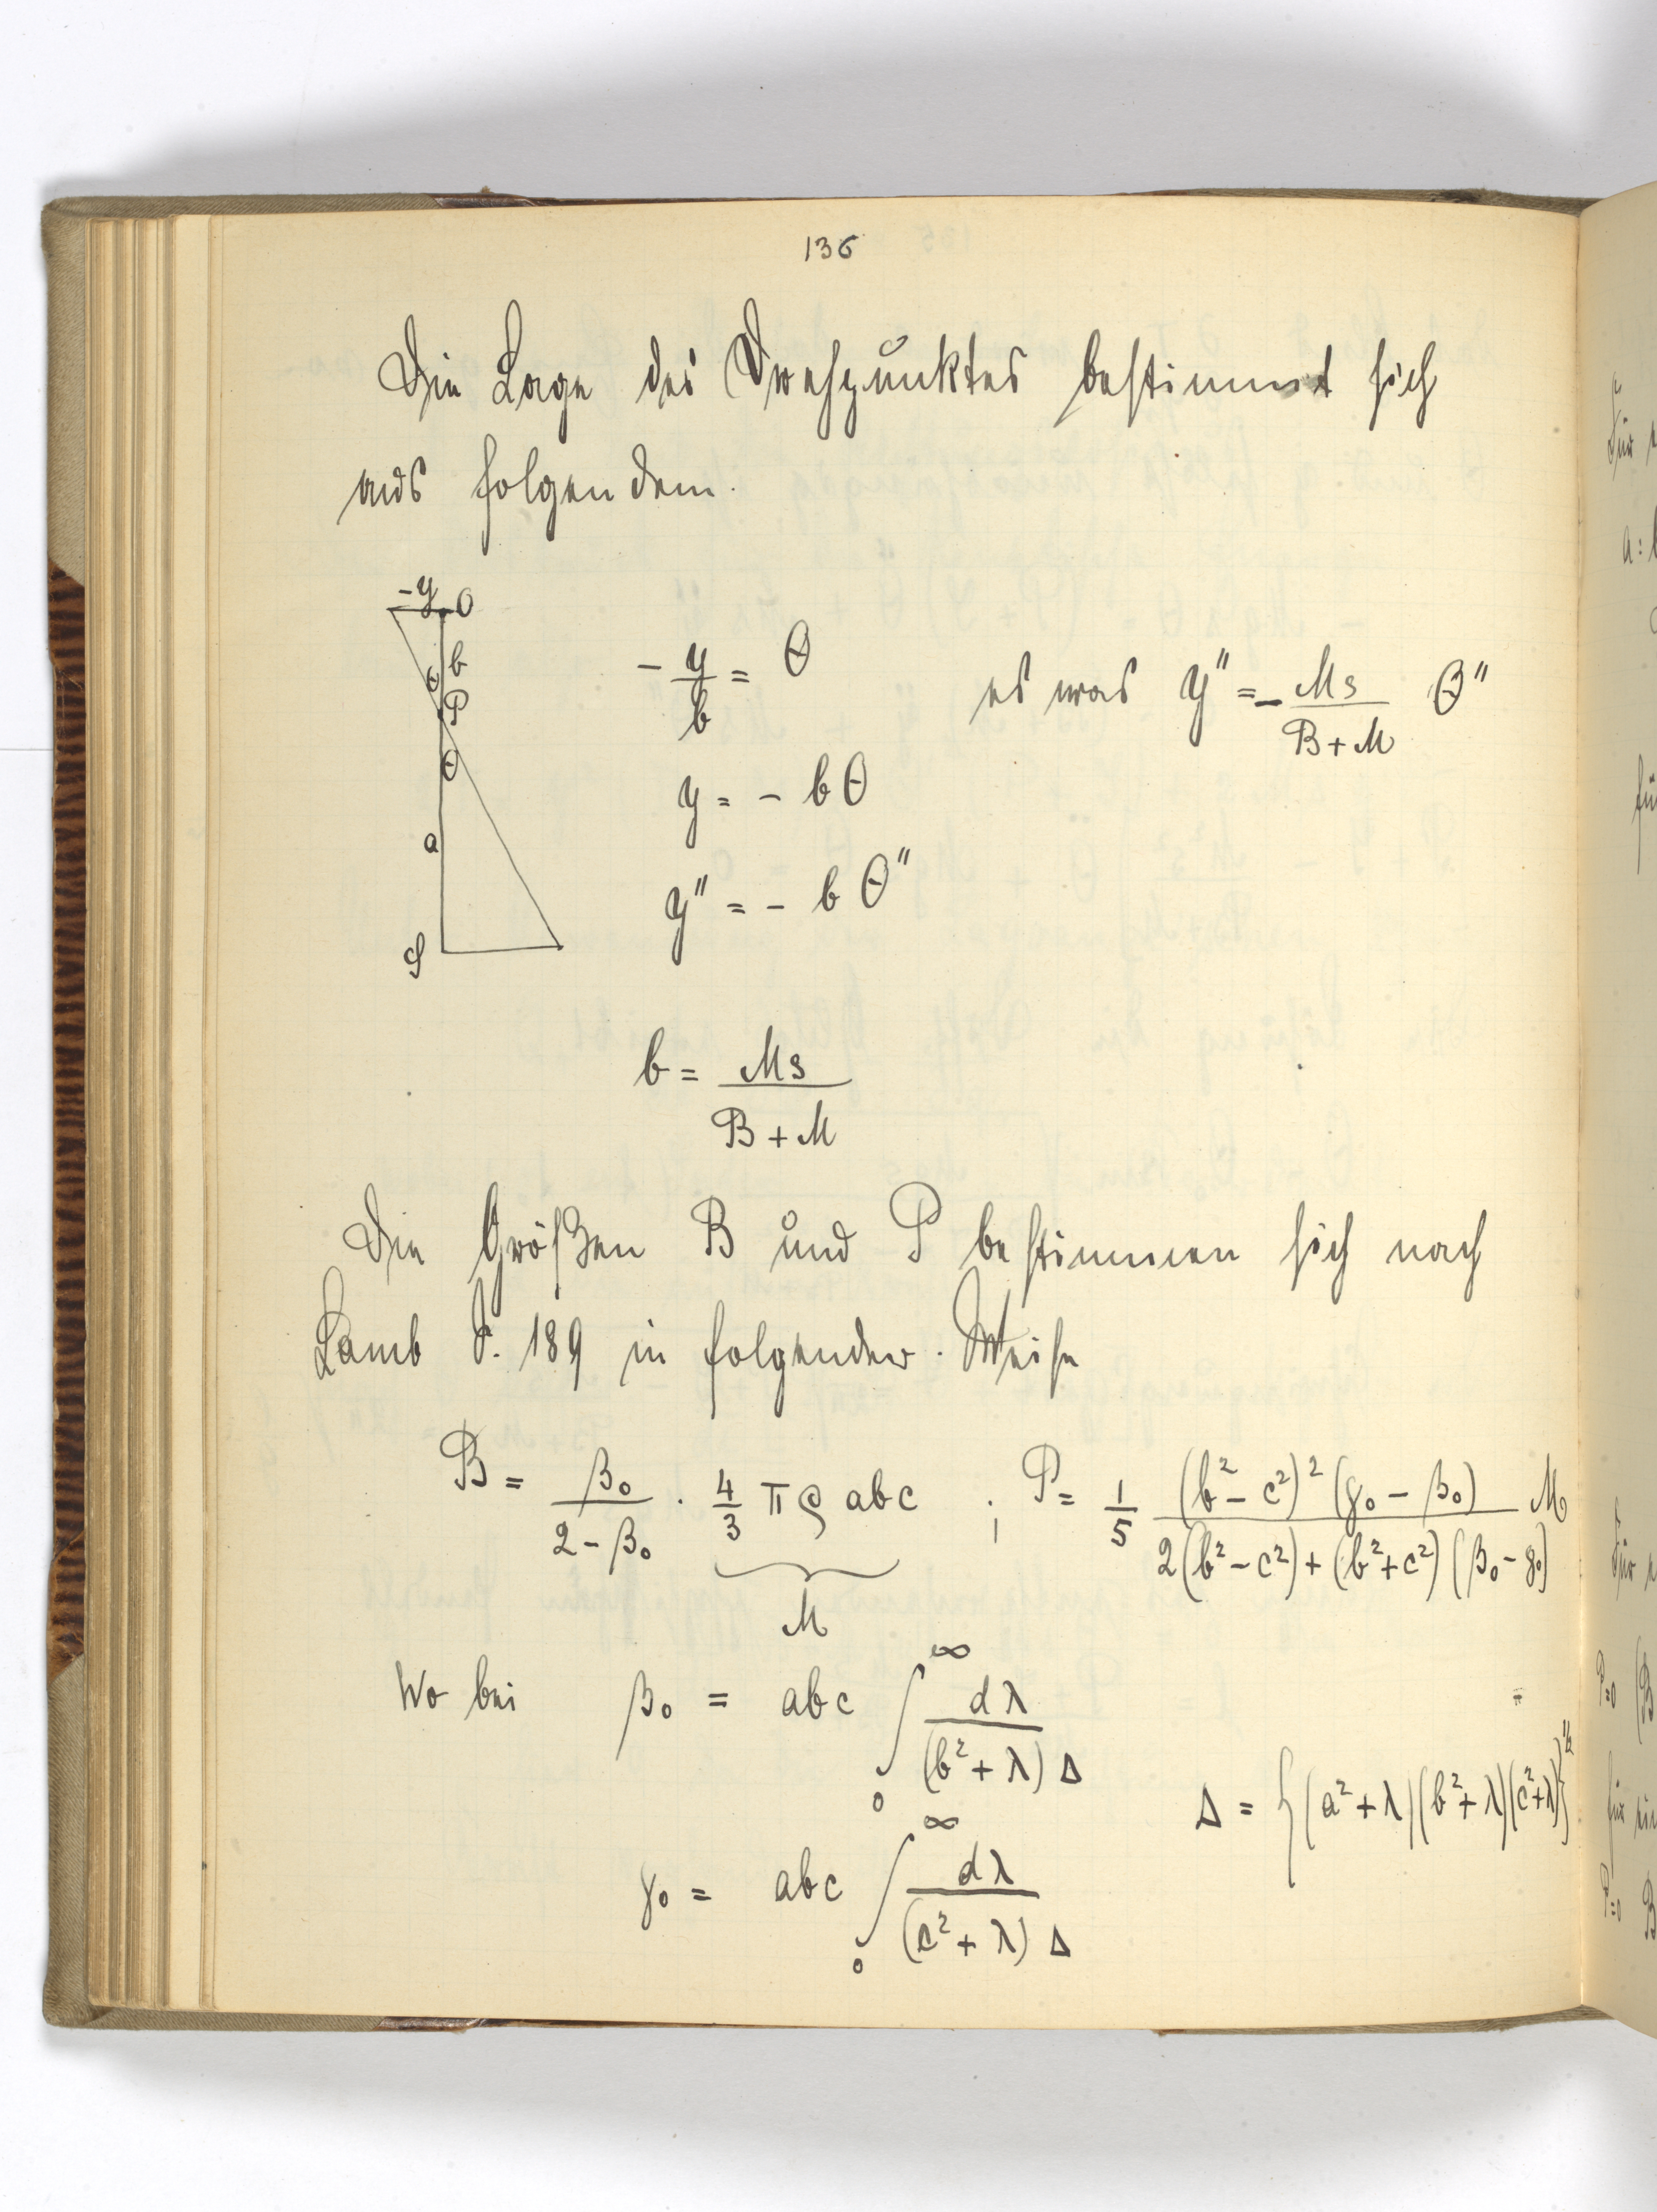 136
Die Lage des Drehpunktes bestimmt sich
aus folgendem.
-y O
b
θ
P
θ
a
S
- y/b = θ es war y'' = - Ms/(B+M) θ''
y = - bθ
y'' = - b θ''
b = Ms/(B+M)
Die Größen B und P bestimmen sich nach
Lamb S. 189 in folgender Weise
B = β₀/(2-β₀) · 4/3 πρ abc ; P = 1/5 (b²-c²)² (γ₀-β₀)/(2(b²-c²)+(b²+c²)(β₀-γ₀)) M
M
Wo bei β₀ = abc ∫₀^∞ dλ/((b²+λ) Δ)
Δ = {(a²+λ)(b²+λ)(c²+λ)}^½
γ₀ = abc ∫₀^∞ dλ/((c²+λ) Δ)